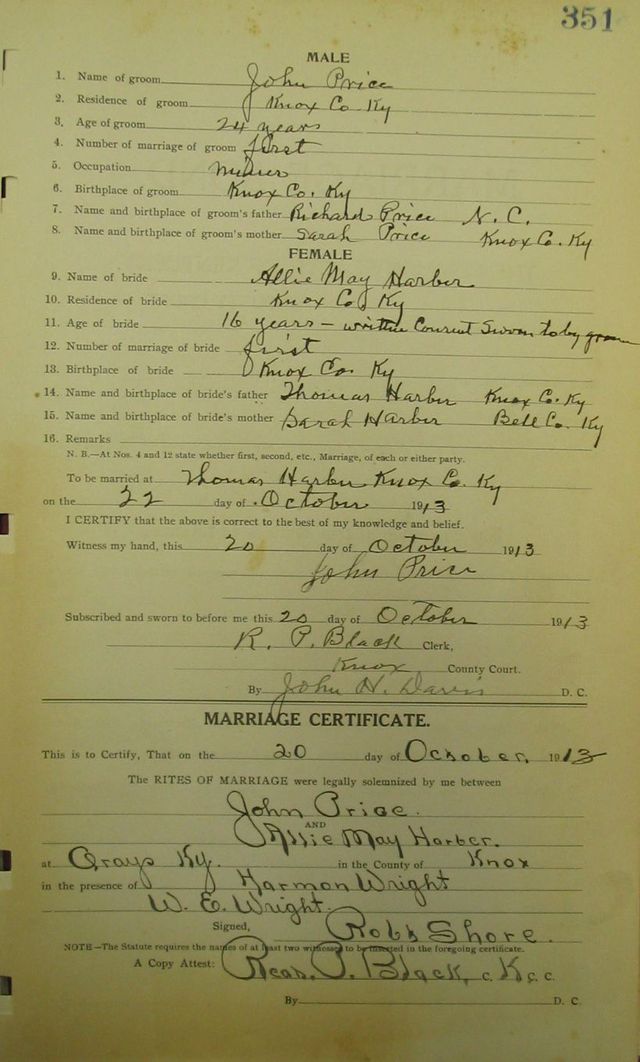 351
MALE
1. Name of groom John Price
2. Residence of groom Knox Co. Ky
3. Age of groom 24 years
4. Number of marriage of groom first
5. Occupation
6. Birthplace of groom Knox Co. Ky
7. Name and birthplace of groom's father Richard Price N. C.
8. Name and birthplace of groom's mother Sarah Price Knox Co. Ky
FEMALE
9. Name of bride Allie May Harber
10. Residence of bride Knox Co. Ky
11. Age of bride 16 years – written Consent Sworn to by groom
12. Number of marriage of bride first
13. Birthplace of bride Knox Co. Ky
14. Name and birthplace of bride's father Thomas Harber Knox Co. Ky
15. Name and birthplace of bride's mother Sarah Harber Bell Co. Ky
16. Remarks
N. B.—At Nos. 4 and 12 state whether first, second, etc., Marriage, of each or either party.
To be married at Thomas Harber Knox Co. Ky
on the 22 day of October 1913
I CERTIFY that the above is correct to the best of my knowledge and belief.
Witness my hand, this 20 day of October 1913
John Price
Subscribed and sworn to before me this 20 day of October 1913
R. P. Black Clerk,
Knox County Court.
By John H. Davis D. C.
MARRIAGE CERTIFICATE.
This is to Certify, That on the 20 day of October, 1913
The RITES OF MARRIAGE were legally solemnized by me between
John Price.
AND
Allie May Harber.
at Grays Ky. in the County of Knox
in the presence of Harmon Wright
W. E. Wright.
Signed, Robt Shore.
NOTE—The Statute requires the names of at least two witnesses to be inserted in the foregoing certificate.
A Copy Attest: P. Black, C. K. C. C.
By D. C.